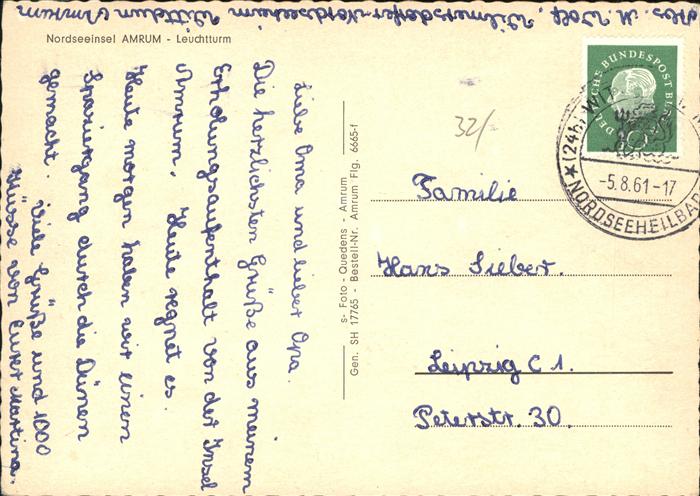 Abs. M. Wolf, Wilmersdorfer-Nordseeheim Wittdün Amrum
Nordseeinsel AMRUM - Leuchtturm
Liebe Oma und lieber Opa.
Die herzlichsten Grüße aus meinem
Erholungsaufenthalt von der Insel
Amrum. Heute regnet es.
Heute morgen haben wir einen
Spaziergang durch die Dünen
gemacht. Viele Grüße und 1000
Küsse von Eurer Martina.
s- Foto - Quedens - Amrum
Gen. SH 17765 - Bestell-Nr. Amrum Flg. 6665-f
32/
DEUTSCHE BUNDESPOST
(24b) WIT
-5.8.61-17
NORDSEEHEILBAD
Familie
Hans Sieber.
Leipzig C 1.
Peterstr. 30.